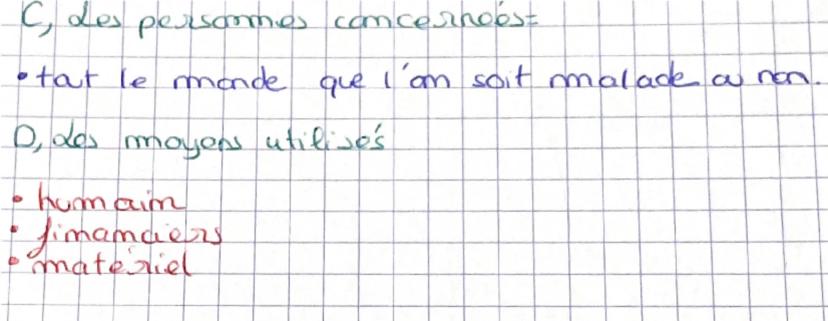 C, Les personnes concernées=
• tout le monde que l'on soit malade ou non.
D, des moyens utilisés
• humain
• financiers
• matériel